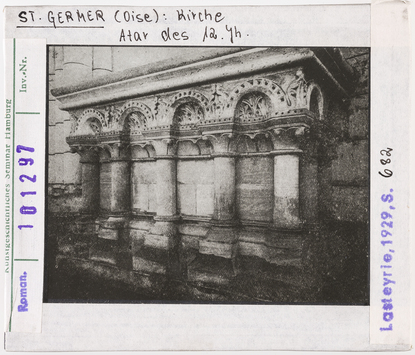 ST. GERMER (Oise): Kirche
Atar des 12. Jh.
Kunstgeschichtliches Seminar Hamburg
Inv.-Nr.
Roman. 101297
Lasteyrie, 1929, S. 682